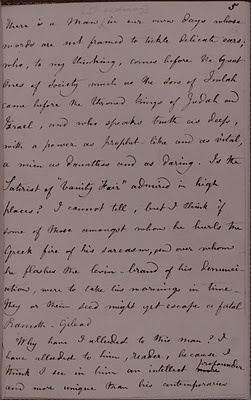 5
There is a Man in our own days whose
words are not framed to tickle delicate ears;
who, to my thinking, comes before the Great
Ones of Society much as the son of Imlah
came before the throned kings of Judah and
Israel, and who speaks truth as deep,
with a power as prophet-like and as vital,
a mien as dauntless and as daring. Is the
Satirist of "Vanity Fair" admired in high
places? I cannot tell, but I think if
some of those amongst whom he hurls the
Greek fire of his sarcasm, and over whom
he flashes the levin-brand of his denunci-
ation, were to take his warnings in time
they or their seed might yet escape a fatal
Ramoth-Gilead
Why have I alluded to this man? I
have alluded to him, reader, because I
think I see in him an intellect profounder
and more unique than his contemporaries